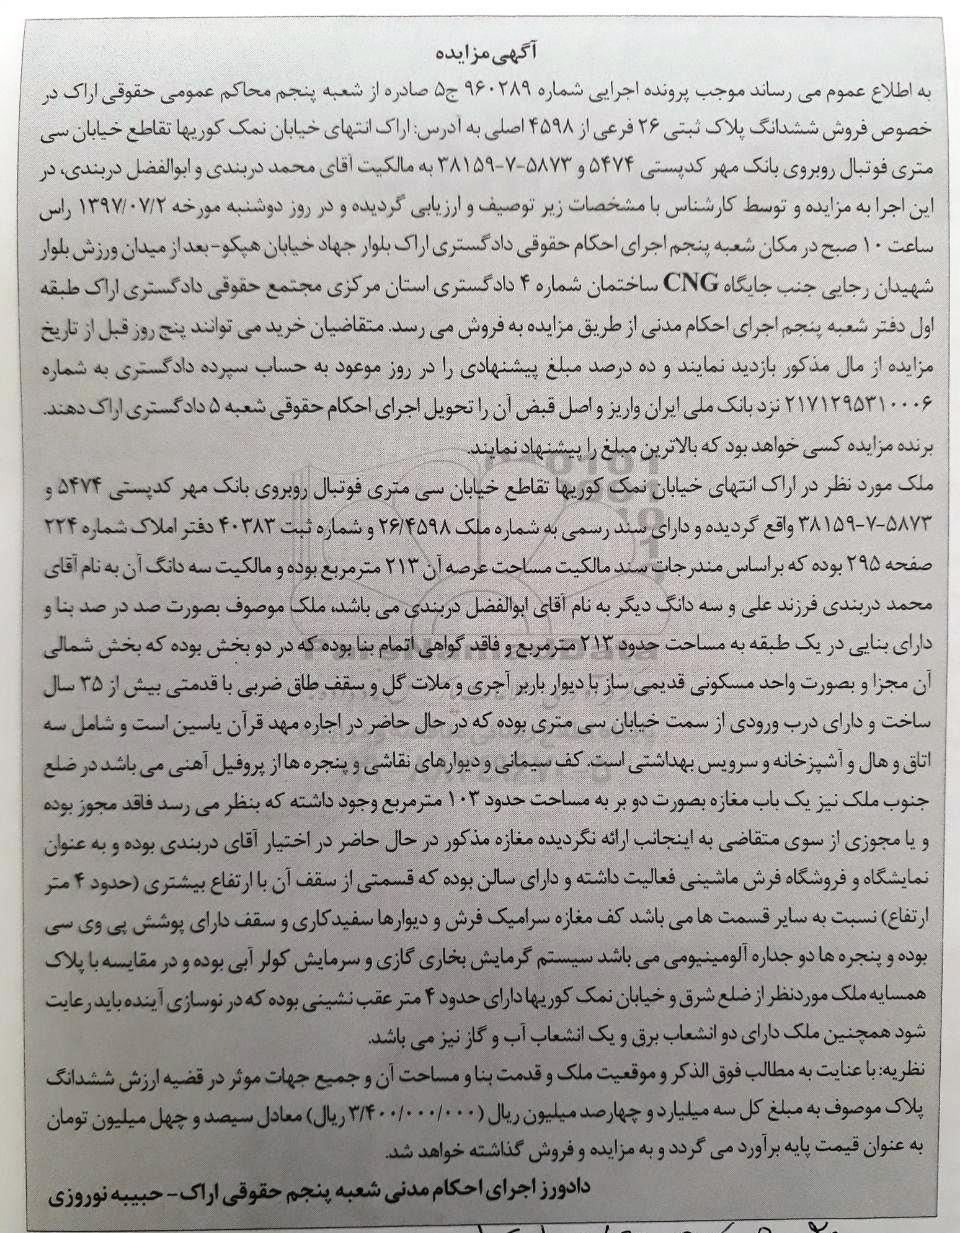 آگهی مزایده
به اطلاع عموم می رساند موجب پرونده اجرایی شماره ۹۶۰۲۸۹ ج۵ صادره از شعبه پنجم محاکم عمومی حقوقی اراک در
خصوص فروش ششدانگ پلاک ثبتی ۲۶ فرعی از ۴۵۹۸ اصلی به آدرس: اراک انتهای خیابان نمک کوریها تقاطع خیابان سی
متری فوتبال روبروی بانک مهر کدپستی ۵۴۷۴ و ۵۸۷۳-۷-۳۸۱۵۹ به مالکیت آقای محمد دربندی و ابوالفضل دربندی، در
این اجرا به مزایده و توسط کارشناس با مشخصات زیر توصیف و ارزیابی گردیده و در روز دوشنبه مورخه ۱۳۹۷/۰۷/۲ راس
ساعت ۱۰ صبح در مکان شعبه پنجم اجرای احکام حقوقی دادگستری اراک بلوار جهاد خیابان هپکو-بعد از میدان ورزش بلوار
شهیدان رجایی جنب جایگاه CNG ساختمان شماره ۴ دادگستری استان مرکزی مجتمع حقوقی دادگستری اراک طبقه
اول دفتر شعبه پنجم اجرای احکام مدنی از طریق مزایده به فروش می رسد. متقاضیان خرید می توانند پنج روز قبل از تاریخ
مزایده از مال مذکور بازدید نمایند و ده درصد مبلغ پیشنهادی را در روز موعود به حساب سپرده دادگستری به شماره
۲۱۷۱۲۹۵۳۱۰۰۰۶ نزد بانک ملی ایران واریز و اصل قبض آن را تحویل اجرای احکام حقوقی شعبه ۵ دادگستری اراک دهند.
برنده مزایده کسی خواهد بود که بالاترین مبلغ را پیشنهاد نمایند.
ملک مورد نظر در اراک انتهای خیابان نمک کوریها تقاطع خیابان سی متری فوتبال روبروی بانک مهر کدپستی ۵۴۷۴ و
۵۸۷۳-۷-۳۸۱۵۹ واقع گردیده و دارای سند رسمی به شماره ملک ۲۶/۴۵۹۸ و شماره ثبت ۴۰۳۸۳ دفتر املاک شماره ۲۲۴
صفحه ۲۹۵ بوده که براساس مندرجات سند مالکیت مساحت عرصه آن ۲۱۳ مترمربع بوده و مالکیت سه دانگ آن به نام آقای
محمد دربندی فرزند علی و سه دانگ دیگر به نام آقای ابوالفضل دربندی می باشد، ملک موصوف بصورت صد در صد بنا و
دارای بنایی در یک طبقه به مساحت حدود ۲۱۳ مترمربع و فاقد گواهی اتمام بنا بوده که در دو بخش بوده که بخش شمالی
آن مجزا و بصورت واحد مسکونی قدیمی ساز با دیوار باربر آجری و ملات گل و سقف طاق ضربی با قدمتی بیش از ۳۵ سال
ساخت و دارای درب ورودی از سمت خیابان سی متری بوده که در حال حاضر در اجاره مهد قرآن یاسین است و شامل سه
اتاق و هال و آشپزخانه و سرویس بهداشتی است. کف سیمانی و دیوارهای نقاشی و پنجره ها از پروفیل آهنی می باشد در ضلع
جنوب ملک نیز یک باب مغازه بصورت دو بر به مساحت حدود ۱۰۳ مترمربع وجود داشته که بنظر می رسد فاقد مجوز بوده
و یا مجوزی از سوی متقاضی به اینجانب ارائه نگردیده مغازه مذکور در حال حاضر در اختیار آقای دربندی بوده و به عنوان
نمایشگاه و فروشگاه فرش ماشینی فعالیت داشته و دارای سالن بوده که قسمتی از سقف آن با ارتفاع بیشتری (حدود ۴ متر
ارتفاع) نسبت به سایر قسمت ها می باشد کف مغازه سرامیک فرش و دیوارها سفیدکاری و سقف دارای پوشش پی وی سی
بوده و پنجره ها دو جداره آلومینیومی می باشد سیستم گرمایش بخاری گازی و سرمایش کولر آبی بوده و در مقایسه با پلاک
همسایه ملک موردنظر از ضلع شرق و خیابان نمک کوریها دارای حدود ۴ متر عقب نشینی بوده که در نوسازی آینده باید رعایت
شود همچنین ملک دارای دو انشعاب برق و یک انشعاب آب و گاز نیز می باشد.
نظریه: با عنایت به مطالب فوق الذکر و موقعیت ملک و قدمت بنا و مساحت آن و جمیع جهات موثر در قضیه ارزش ششدانگ
پلاک موصوف به مبلغ کل سه میلیارد و چهارصد میلیون ریال (۳/۴۰۰/۰۰۰/۰۰۰ ریال) معادل سیصد و چهل میلیون تومان
به عنوان قیمت پایه برآورد می گردد و به مزایده و فروش گذاشته خواهد شد.
دادورز اجرای احکام مدنی شعبه پنجم حقوقی اراک- حبیبه نوروزی